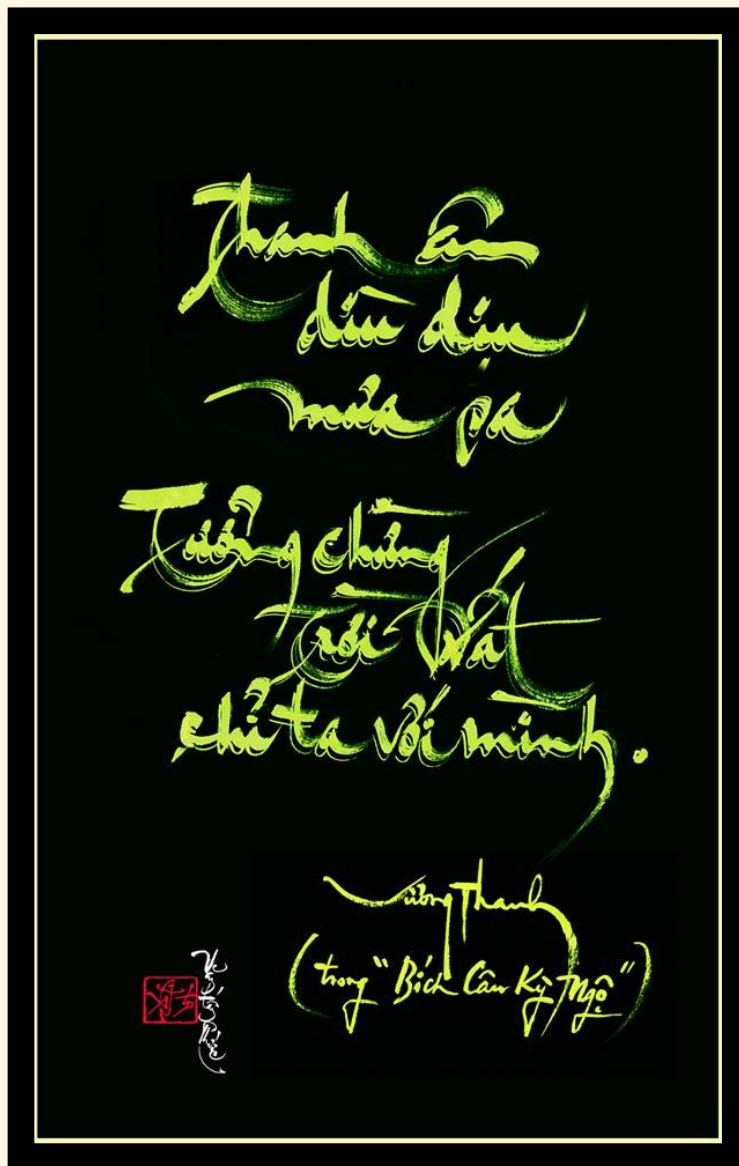 Thanh âm
dìu dịu
mưa sa
Tưởng chừng
trời đất
chỉ ta với mình.
Vương Thanh
(trong "Bích Câu Kỳ Ngộ")